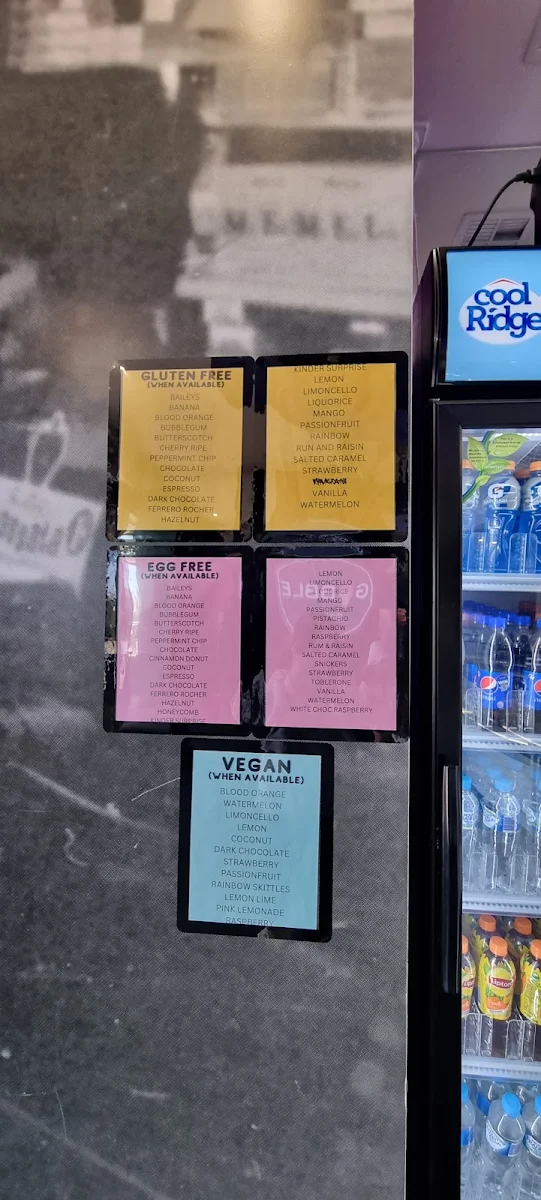 GLUTEN FREE
(WHEN AVAILABLE)
BAILEYS
BANANA
BLOOD ORANGE
BUBBLEGUM
BUTTERSCOTCH
CHERRY RIPE
PEPPERMINT CHIP
CHOCOLATE
COCONUT
ESPRESSO
DARK CHOCOLATE
FERRERO ROCHER
HAZELNUT
KINDER SURPRISE
LEMON
LIMONCELLO
LIQUORICE
MANGO
PASSIONFRUIT
RAINBOW
RUN AND RAISIN
SALTED CARAMEL
STRAWBERRY
VANILLA
WATERMELON
EGG FREE
(WHEN AVAILABLE)
BAILEYS
BANANA
BLOOD ORANGE
BUBBLEGUM
BUTTERSCOTCH
CHERRY RIPE
PEPPERMINT CHIP
CHOCOLATE
CINNAMON DONUT
COCONUT
ESPRESSO
DARK CHOCOLATE
FERRERO ROCHER
HAZELNUT
HONEYCOMB
KINDER SURPRISE
LEMON
LIMONCELLO
LIQUORICE
MANGO
PASSIONFRUIT
PISTACHIO
RAINBOW
RASPBERRY
RUM & RAISIN
SALTED CARAMEL
SNICKERS
STRAWBERRY
TOBLERONE
VANILLA
WATERMELON
WHITE CHOC RASPBERRY
VEGAN
(WHEN AVAILABLE)
BLOOD ORANGE
WATERMELON
LIMONCELLO
LEMON
COCONUT
DARK CHOCOLATE
STRAWBERRY
PASSIONFRUIT
RAINBOW SKITTLES
LEMON LIME
PINK LEMONADE
RASPBERRY
cool
Ridge
G
pepsi
Lipton